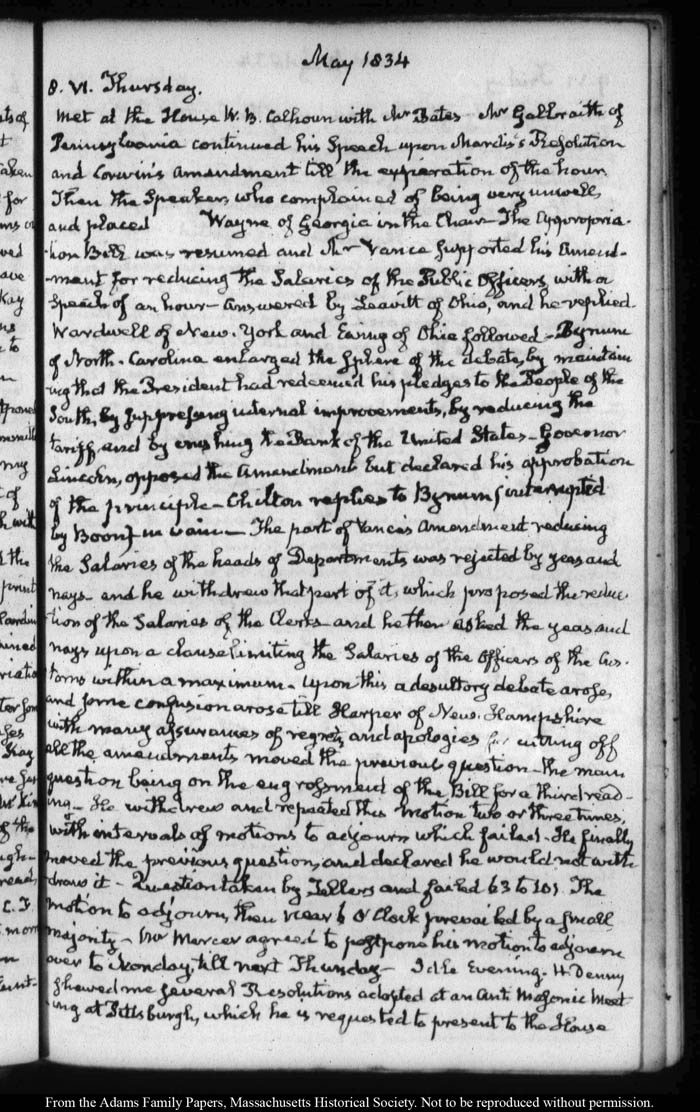 May 1834
8. VI. Thursday.
Met at the House W. B. Calhoun with Mr Bates Mr Galbraith of
Pennsylvania continued his Speech upon Mardis's Resolution
and Corwin's amendment till the expiration of the hour
Then the Speaker, who complained of being very unwell,
and placed Wayne of Georgia in the Chair — The Appropria-
tion Bill was resumed and Mr Vance supported his Amend-
-ment for reducing the Salaries of the Public Officers, with a
Speech of an hour — answered by Leavitt of Ohio, and he replied.
Wardwell of New-York and Ewing of Ohio followed — Bynum
of North-Carolina enlarged the sphere of the debate, by maintain
ing that the President had redeemed his pledges to the People of the
South, by suppressing internal improvements, by reducing the
tariff, and by crushing the Bank of the United States — Governor
Lincoln, opposed the Amendment but declared his approbation
of the principle — Chilton replies to Bynum (interrupted
by Boon) in vain — The part of Vance's Amendment reducing
the Salaries of the heads of Departments was rejected by yeas and
nays — and he withdrew that part of it, which proposed the reduc
tion of the Salaries of the Clerks — and he then asked the yeas and
nays upon a clause limiting the Salaries of the Officers of the Cus-
toms within a maximum. Upon this a desultory debate arose,
and some confusion arose till Harper of New-Hampshire
with many assurances of regret, and apologies for cutting off
all the amendments moved the previous question — the main
question being on the engrossment of the Bill for a third read-
ing — He withdrew and repeated this motion two or three times,
with intervals of motions to adjourn which failed — He finally
moved the previous question, and declared he would not with
draw it — Question taken by Tellers and failed 63 to 101. The
motion to adjourn, then near 6 O'Clock prevailed by a small
majority — Mr Mercer agreed to postpone his motion to adjourn
over to Monday, till next Thursday — Idle Evening. H. Denny
shewed me several Resolutions adopted at an Anti Masonic Meet
ing at Pittsburgh, which he is requested to present to the House
From the Adams Family Papers, Massachusetts Historical Society. Not to be reproduced without permission.